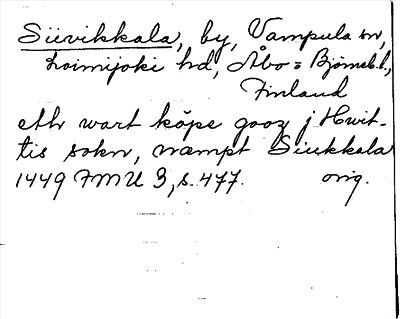 Siivikkala, by, Vampula sn,
Loimijoki hd, Åbo = Björneb. l.,
Finland
eth wart köpe gooz j Hwit-
tis sokn, næmpt Siukkala
1449 FMU 3, s. 477. orig.